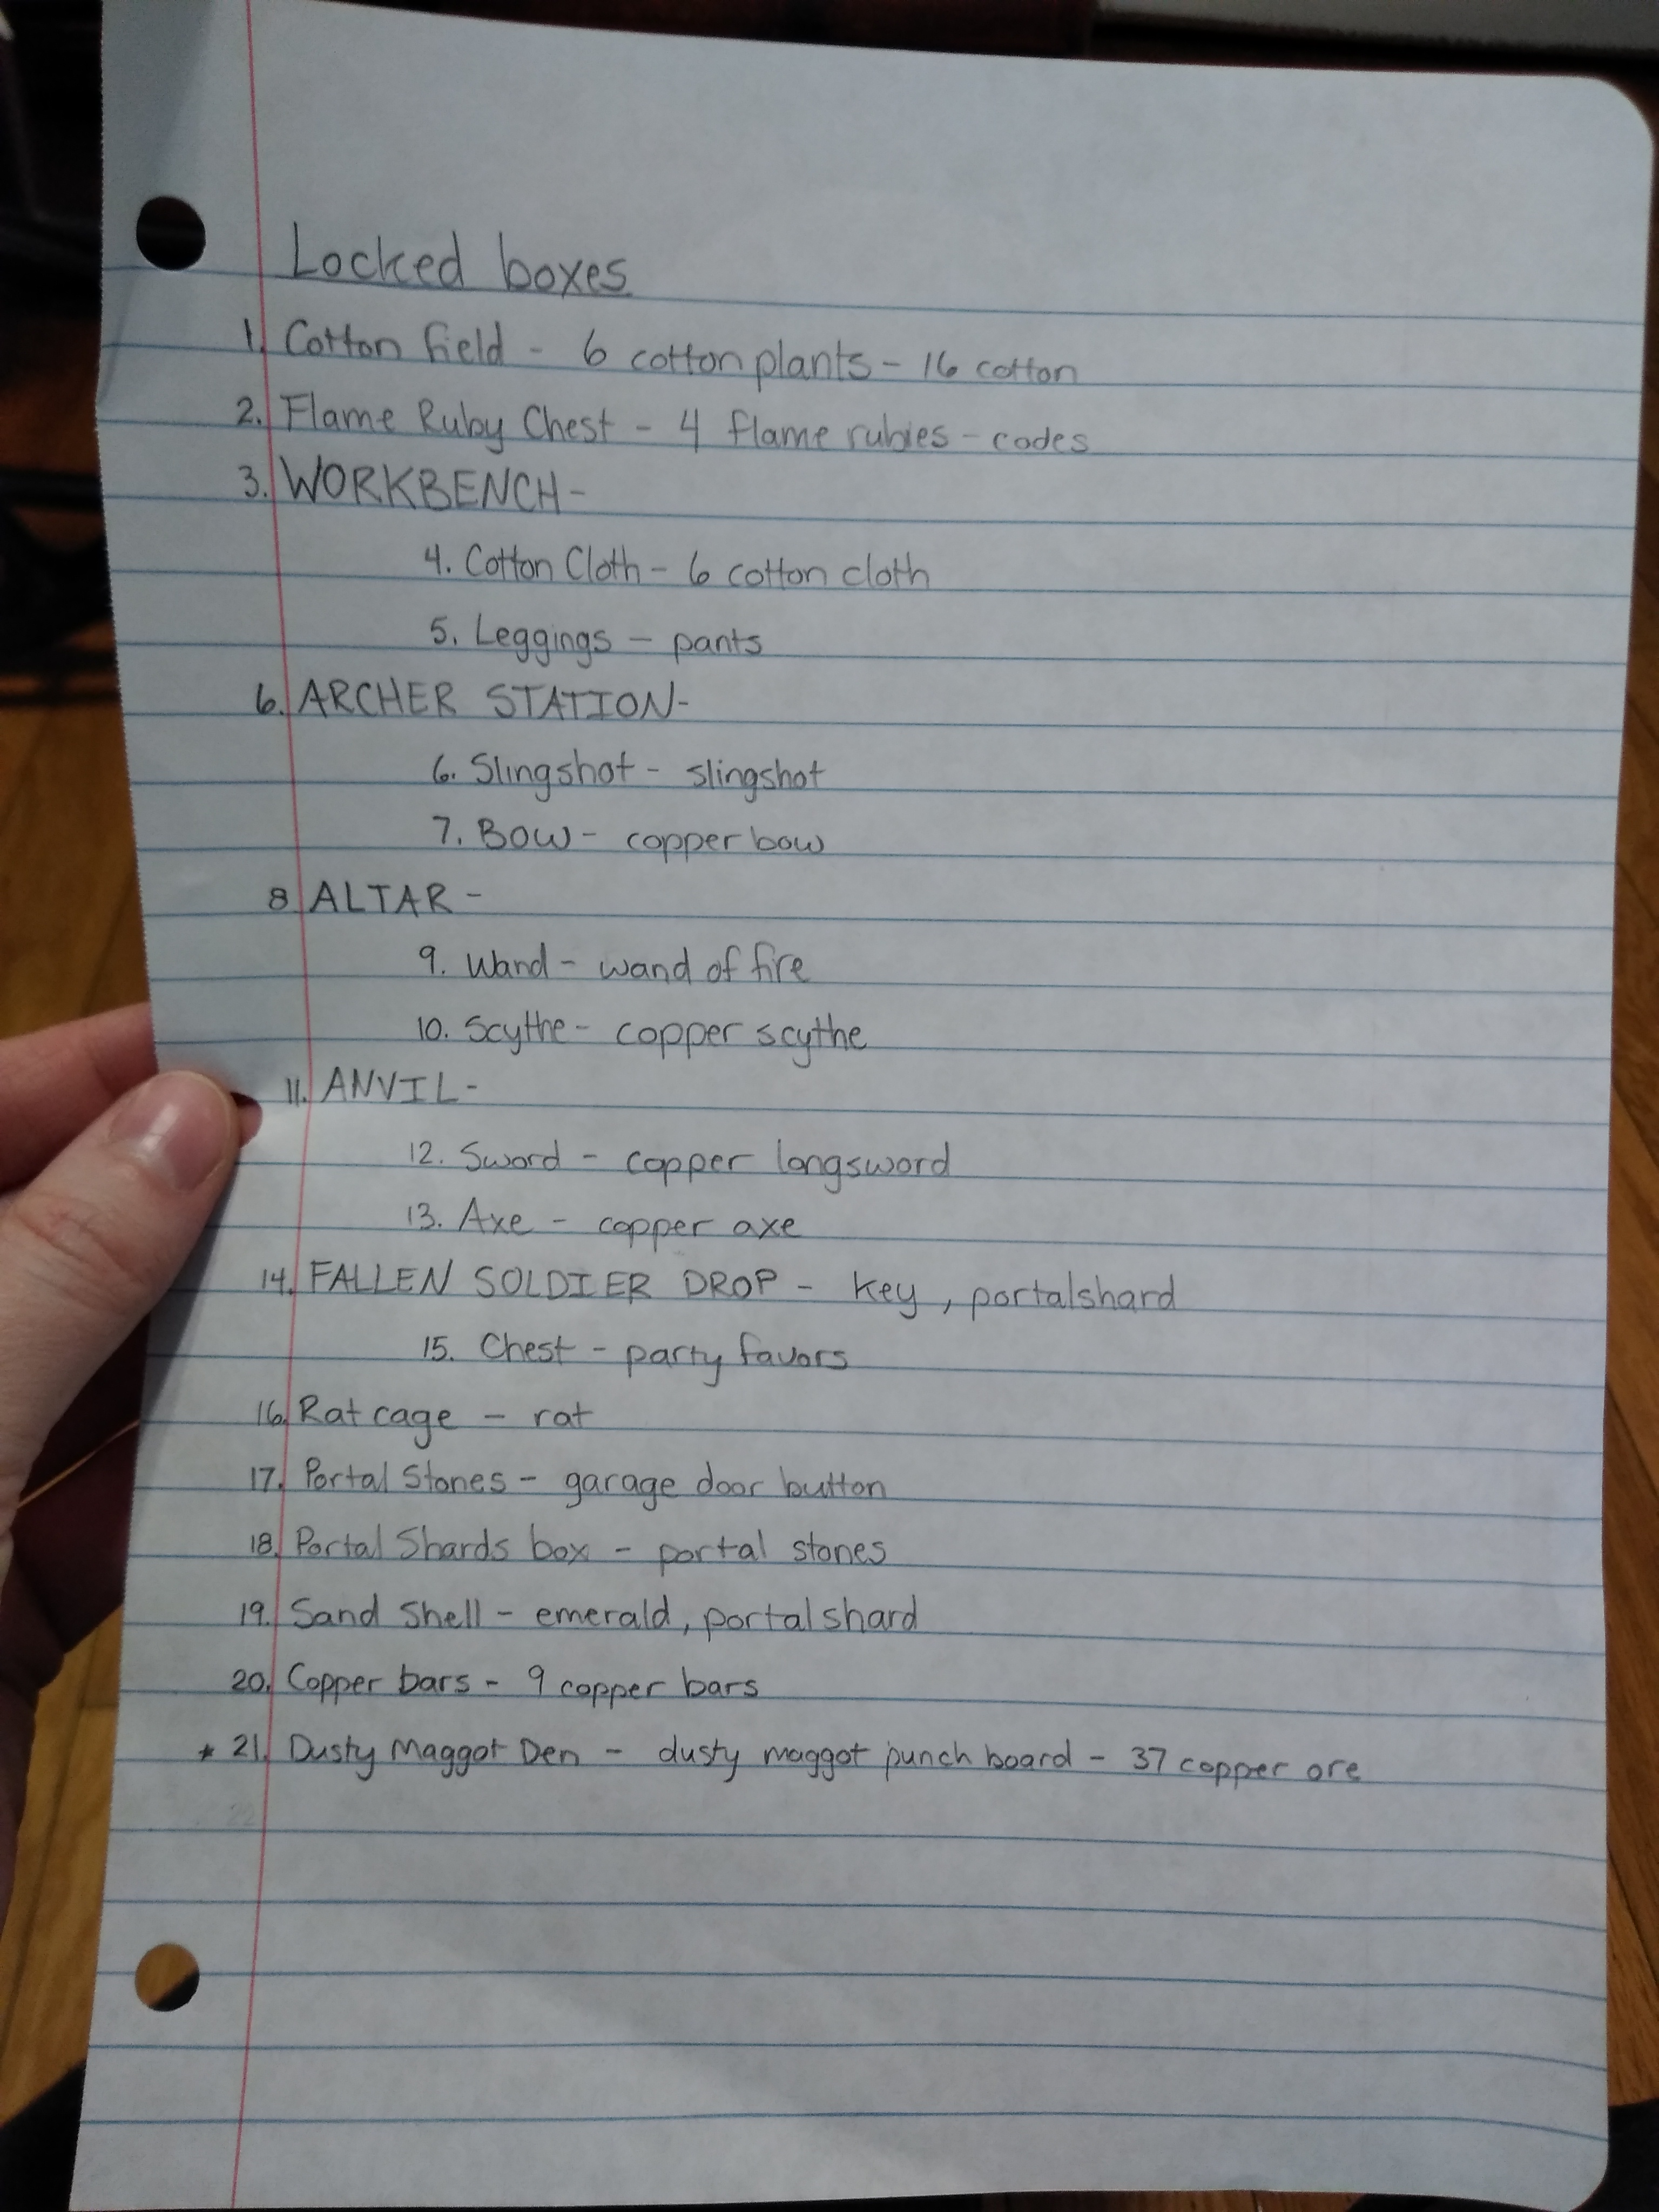 Locked boxes
1. Cotton field - 6 cotton plants - 16 cotton
2. Flame Ruby Chest - 4 flame rubies - codes
3. WORKBENCH -
4. Cotton Cloth - 6 cotton cloth
5. Leggings - pants
6. ARCHER STATION -
6. Slingshot - slingshot
7. Bow - copper bow
8 ALTAR -
9. Wand - wand of fire
10. Scythe - copper scythe
11. ANVIL -
12. Sword - copper longsword
13. Axe - copper axe
14. FALLEN SOLDIER DROP - key, portalshard
15. Chest - party favors
16. Rat cage - rat
17. Portal Stones - garage door button
18. Portal Shards box - portal stones
19. Sand Shell - emerald, portalshard
20. Copper bars - 9 copper bars
* 21. Dusty Maggot Den - dusty maggot punch board - 37 copper ore
22